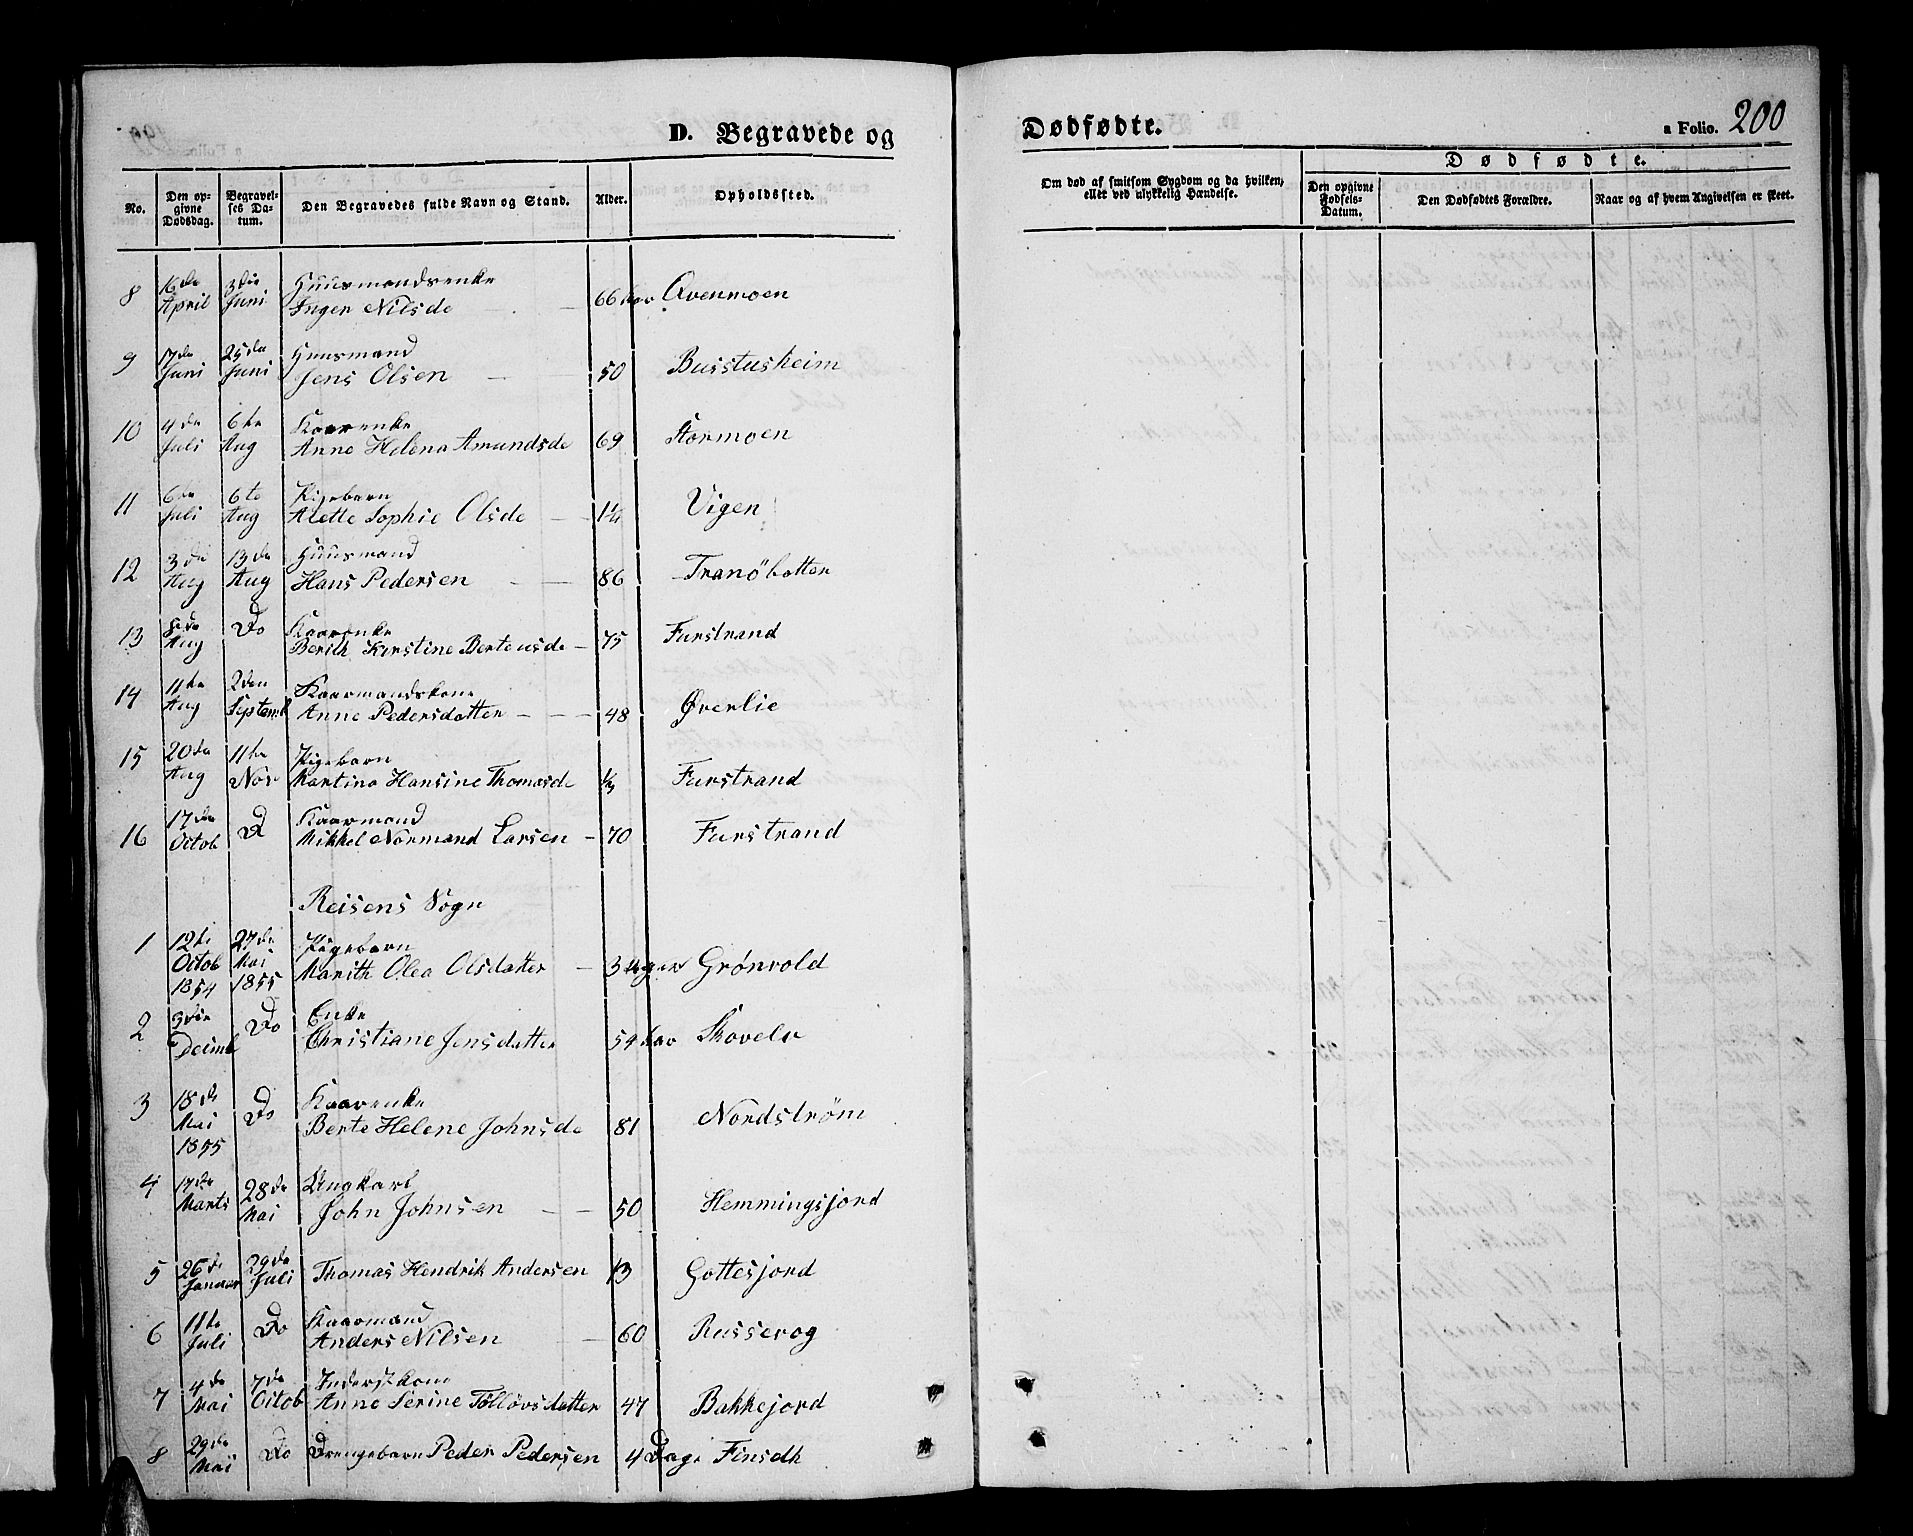 D. Begravede og Dødfødte. a Folio. 200
No. Den opgivne Dødsdag. Begravelses Datum. Den Begravedes fulde Navn og Stand. Alder. Opholdssted. Om død af smitsom Sygdom og da hvilken, eller ved ulykkelig Hændelse. Dødfødte. Den opgivne Fødsels-Datum. Den Dødfødtes Forældre. Naar og af hvem Angivelsen er skeet.
8 16de April 3die Juni Huusmandsenke
Inger Nilsde 66 Aar Qvenmoen
9 17de Juni 25de Juni Huusmand
Jens Olsen 50 Busstusheim
10 4de Juli 6te Aug Kaarenke
Anne Helena Amundsde 69 Stormoen
11 6te Juli 6te Aug Pigebarn
Alette Sophie Olsde 1¼ Vigen
12 3de Aug 13de Aug Huusmand
Hans Pedersen 86 Tranöbotten
13 8de Aug Do Kaarenke
Berith Kirstine Bertensde 75 Furstrand
14 11te Aug 2den Septemb Kaarmandskone
Anne Pedersdatter 48 Øverlie
15 20de Aug 11te Nov Pigebarn
Martina Hansine Thomasde Furstrand
16 17de Octob Do Kaarmand
Mikkel Normand Larsen 70 Furstrand
Reisens Sogn
1 12te Octob 1854 27de Mai 1855 Pigebarn
Marith Olea Olsdatter 3 Uger Grönvold
2 3die Decemb Do Enke
Christiane Jensdatter 54 Aar Skovelv
3 18de Mai 1855 Do Kaarenke
Berte Helene Johnsde 81 Nordström
4 17de Marts 28de Mai Ungkarl
John Johnsen 50 Hemmingsjord
5 26de Januar 29de Juli Thomas Hendrik Andersen 13 Gottesjord
6 11te Juli Do Kaarmand
Anders Nilsen 60 Russevog
7 4de Mai 7de Octob Inderstkone
Anne Serine Tollövsdatter 47 Bakkejord
8 29de Mai Do Drengebarn Peder Pedersen 4 Dage Finsdh